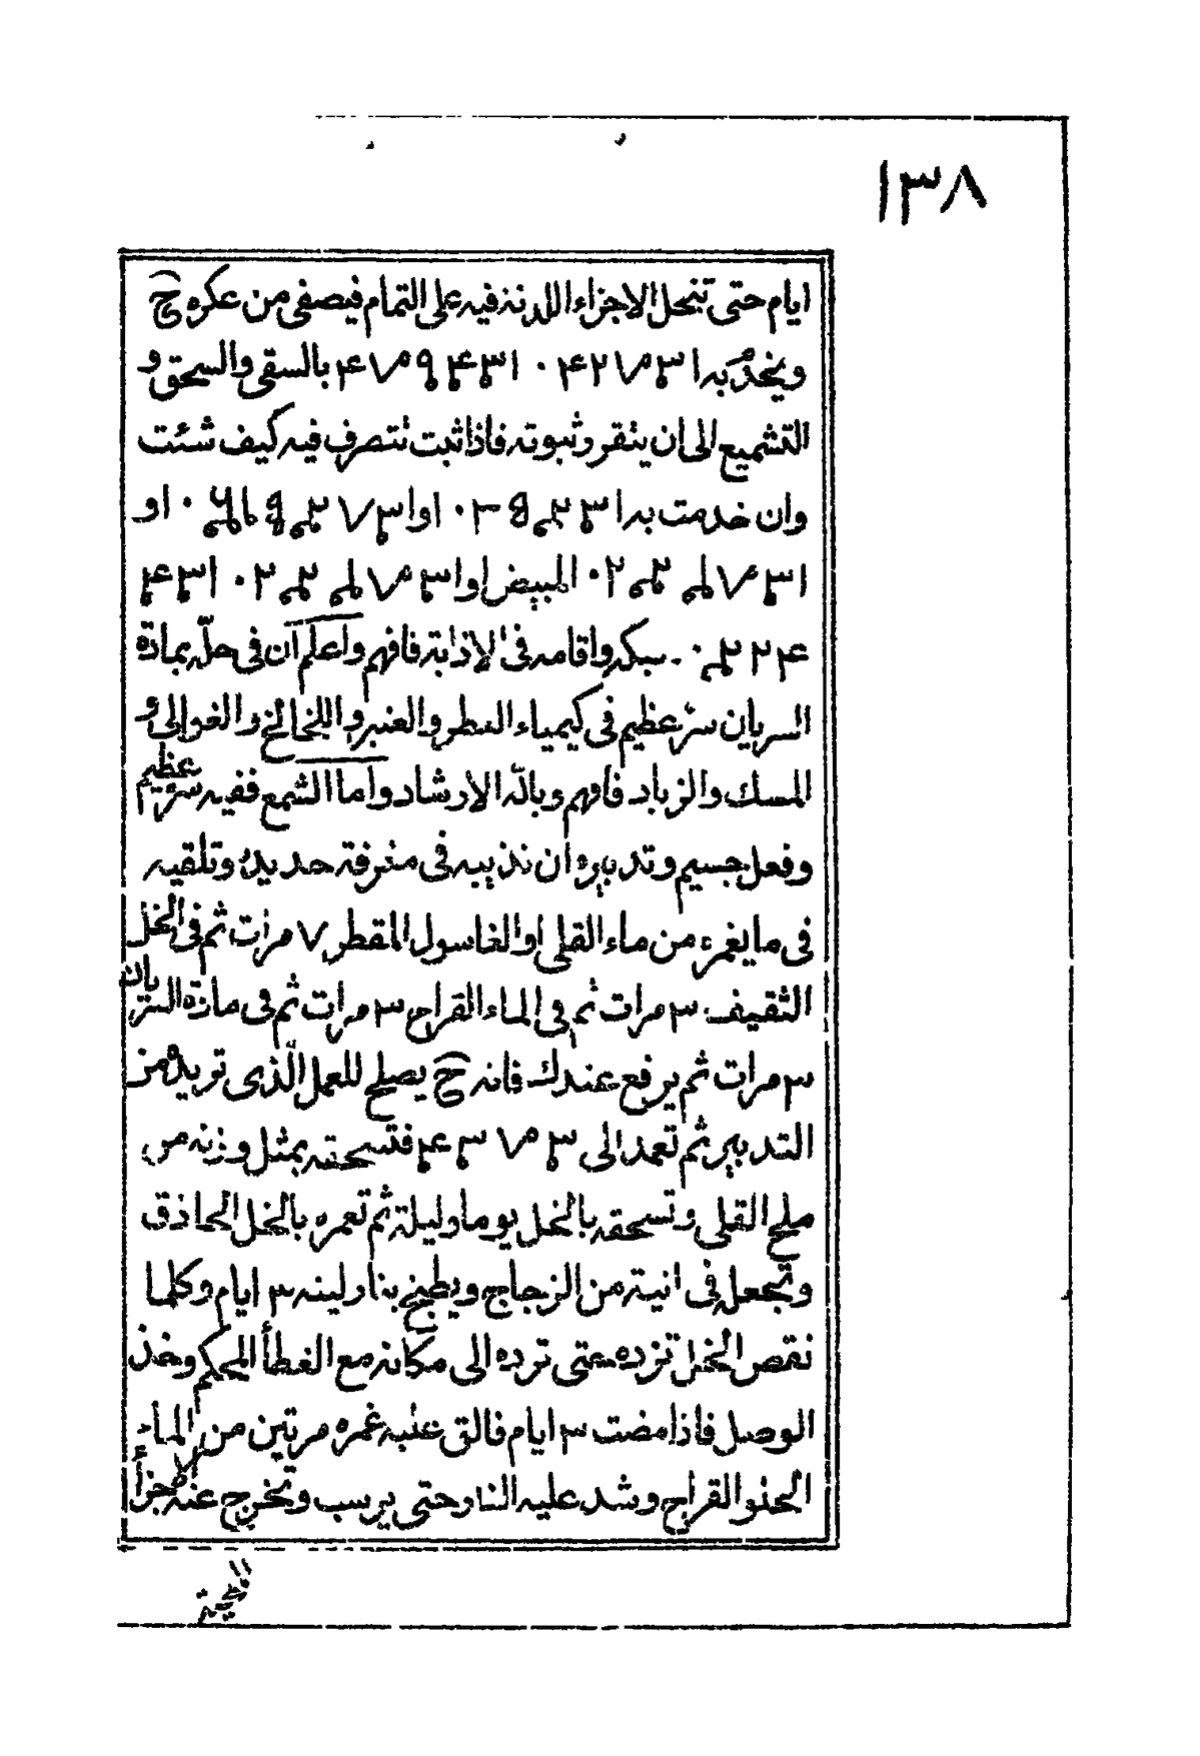 ١٣٨
ايام حتى تنحل الاجزاء اللدنة فيه على التمام فيصفى من عكره ح
ويخدم به بالسقى والسحق و
التشميع الى ان يتقر وثبوته فاذا ثبت تتصرف فيه كيف شئت
وان خدمت به او او
المبيض او
سبكه واقامه فى الاذابة فافهم واعلم ان فى حله بمادة
السريان سر عظيم فى كيمياء العطر والعنبر واللخالخ والغوالى و
المسك والزباد فافهم وبالله الارشاد واما الشمع ففيه سر عظيم
وفعل جسيم وتدبيره ان نذيبه فى مغرفة حديد وتلقيه
فى ما يغمره من ماء القلى او الغاسول المقطر ٧ مرات ثم فى الخل
الثقيف ٣ مرات ثم فى الماء القراح ٣ مرات ثم فى مادة السريان
٣ مرات ثم يرفع عندك فانه ح يصلح للعمل الّذى تريده من
التدبير ثم تعمد الى فتسحقه بمثل وزنه من
ملح القلى وتسحقه بالخل يوما وليلة ثم تغمره بالخل الحاذق
وتجعل فى انية من الزجاج ويطبخ بنار لينه ٣ ايام وكلما
نقص الخل تزده حتى ترده الى مكانه مع الغطأ المحكم وخذ
الوصل فاذا مضت ٣ ايام فالق عليه غمره مرتين من الماء
الحلو القراح وشد عليه النار حتى يرسب وتخرج عنه الاجزأ